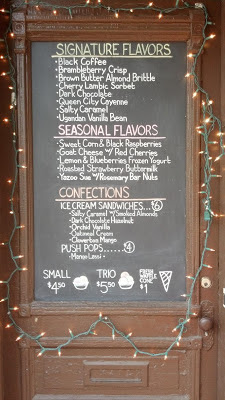 SIGNATURE FLAVORS
• Black Coffee
• Brambleberry Crisp
• Brown Butter Almond Brittle
• Cherry Lambic Sorbet
• Dark Chocolate
• Queen City Cayenne
• Salty Caramel
• Ugandan Vanilla Bean
SEASONAL FLAVORS
• Sweet Corn & Black Raspberries
• Goat Cheese w/ Red Cherries
• Lemon & Blueberries Frozen Yogurt
• Roasted Strawberry Buttermilk
• Yazoo Sue w/ Rosemary Bar Nuts
CONFECTIONS
ICE CREAM SANDWICHES...$6
• Salty Caramel w/ Smoked Almonds
• Dark Chocolate Hazelnut
• Orchid Vanilla
• Oatmeal Cream
• Cloverton Mango
PUSH POPS......$4
• Mango Lassi •
SMALL TRIO FRESH WAFFLE CONE
$4.50 $5.50 $1